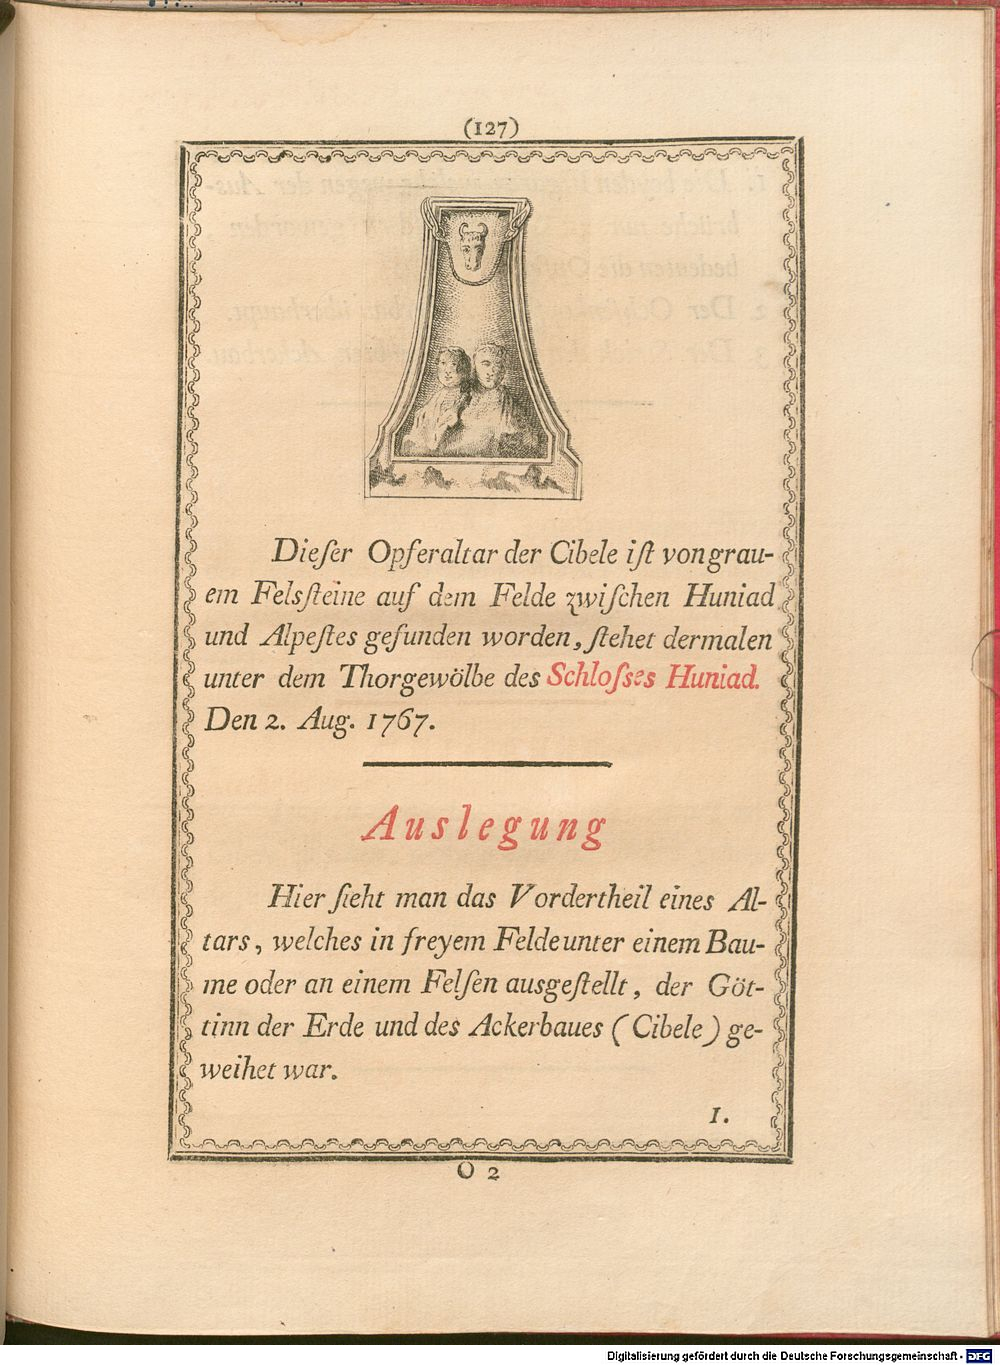 (127)
Dieſer Opferaltar der Cibele iſt von grau-
em Felsſteine auf dem Felde zwiſchen Huniad
und Alpeſtes gefunden worden, ſtehet dermalen
unter dem Thorgewölbe des Schloſses Huniad.
Den 2. Aug. 1767.
Auslegung
Hier ſieht man das Vordertheil eines Al-
tars, welches in freyem Felde unter einem Bau-
me oder an einem Felſen ausgeſtellt, der Göt-
tinn der Erde und des Ackerbaues (Cibele) ge-
weihet war.
1.
O 2
Digitalisierung gefördert durch die Deutsche Forschungsgemeinschaft - DFG